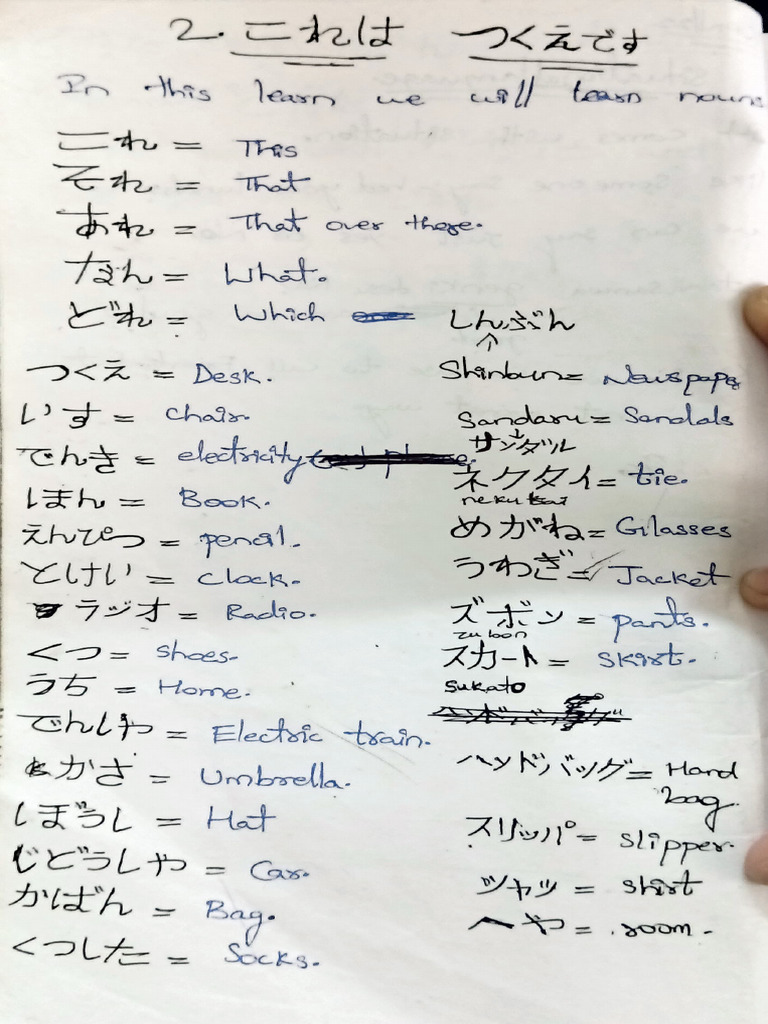 2. これは つくえです
In this learn we will learn nouns
これ = This
それ = That
あれ = That over there.
なん = What.
どれ = Which
つくえ = Desk.
いす = chair.
でんき = electricity
ほん = Book.
えんぴつ = pencil.
とけい = clock.
ラジオ = Radio.
くつ = shoes.
うち = Home.
でんしや = Electric train.
かさ = Umbrella.
ぼうし = Hat
じどうしや = Car.
かばん = Bag.
くつした = Socks.
しんぶん
Shinbun = Newspape
Sandaru = Sandals
サンダル
ネクタイ = tie.
nekutai
めがね = Glasses
うわぎ = Jacket
ズボン = pants.
zubon
スカート = skirt.
sukato
ハンドバッグ = Hand
bag.
スリッパ = slipper.
シャツ = shirt
へや = room.